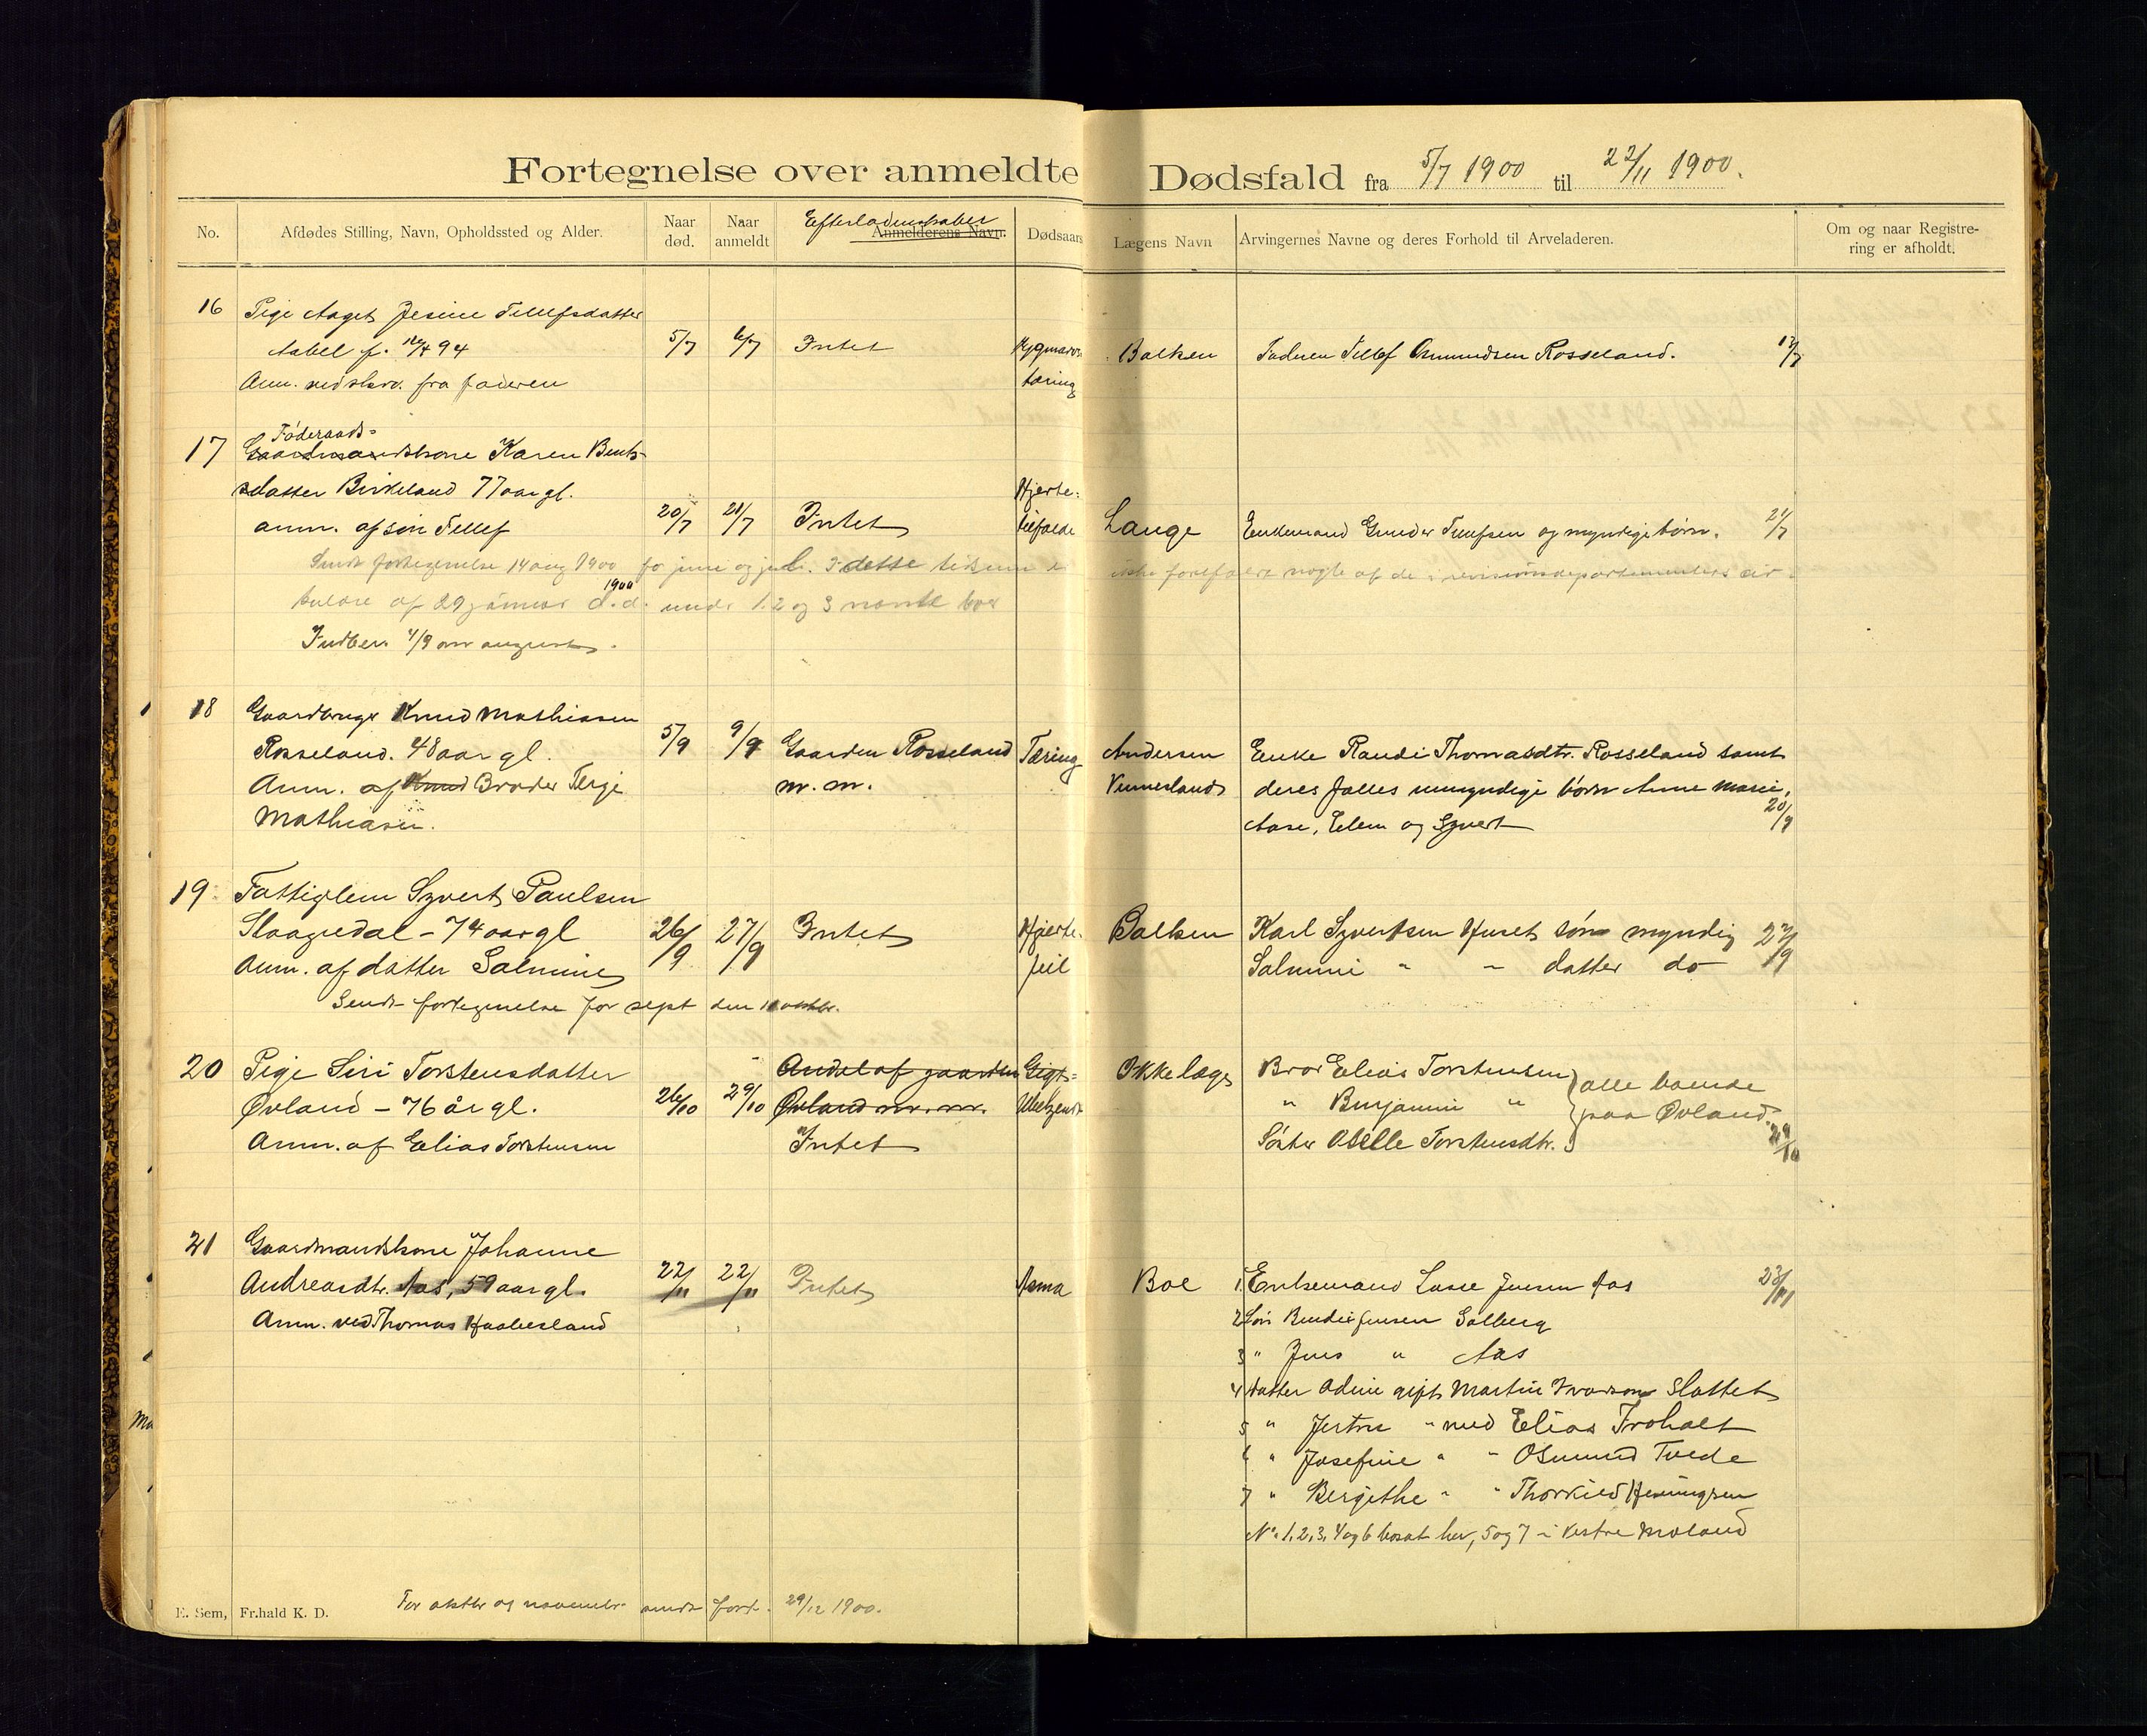 Fortegnelse over anmeldte Dødsfald fra 5/7 1900 til 22/11 1900.
No. Afdødes Stilling, Navn, Opholdssted og Alder. Naar død. Naar anmeldt Efterladenskaber Anmelderens Navn. Dødsaars Lægens Navn Arvingernes Navne og deres Forhold til Arveladeren. Om og naar Registrering er afholdt.
16 Pige Aaget Jesine Tellefsdatter
Aabel f. 94 5/7 6/7 Intet Balken Faderen Tellef Osmundsen Rosseland.
Anm. vedskrv. fra faderen tæring
Føderaads-
17 Gaardmandskone Karen Bents-
datter Birkeland 77 aar gl. Hjerte-
anm. af søn Tellef 20/7 21/7 Intet tilfælde Lange Enkemand Gunder Tellefsen og myndige børn. 21/7
Sendt fortegnelse 14 aug 1900 for juni og juli. I dette tidsrum er ikke forefaldt nogle af de i revisionsdepartementets cir-
kulære af 29 januar 1900 d.d. under 1. 2 og 3 nævnte boer
Indber. 4/9 om august.
18 Gaardbruger Knud Mathiasen
Rosseland. 48 aar gl. 5/9 9/9 Gaarden Rosseland Tæring Andersen Enke Randi Thomasdtr. Rosseland samt
Anm. af Knud Broder Terje m. m. Vennerland deres fælles umyndige børn Anne Marie,
Mathiasen. Aase, Elen og Syvert 20/9
19 Fattiglem Syvert Paulsen
Slaagedal - 74 aar gl 26/9 27/9 Intet Hjerte- Balken Karl Syvertsen Huset søn myndig 27/9
Anm. af datter Salmine feil Salmine " " datter do
Sendt fortegnelse for sept den oktbr.
20 Pige Siri Torstensdatter Andel af gaarden Gigt- Ikke læge Bror Elias Torstensen alle boende
Øvland - 76 år gl. 26/10 29/10 Øvland m. m. " Benjamin " paa Øvland.
Anm. af Elias Torstensen Intet Søster Osille Torstensdtr. 29/10
21 Gaardmandskone Johanne
Andreasdtr. Aas, 59 aar gl. 22/11 22/11 Intet Asma Boe 1 Enkemand Lasse Jensen Aas 23/11
Anm. ved Thomas Haabesland 2 Søn Bendix Jensen Solberg
3 " Jens " Aas
4 Datter Odine gift Martin Ivarson Slottet
5 " " med Elias Froholt
6 " Josefine " " Osmund Tvede
7 " Bergithe " " Thorkild Henningsen
No. 1, 2, 3, 4 og 6 bosat her, 5 og 7 i Vestre Moland
E. Sem, Fr.hald K. D. For oktbr og novembr sendt fort. 29/12 1900.